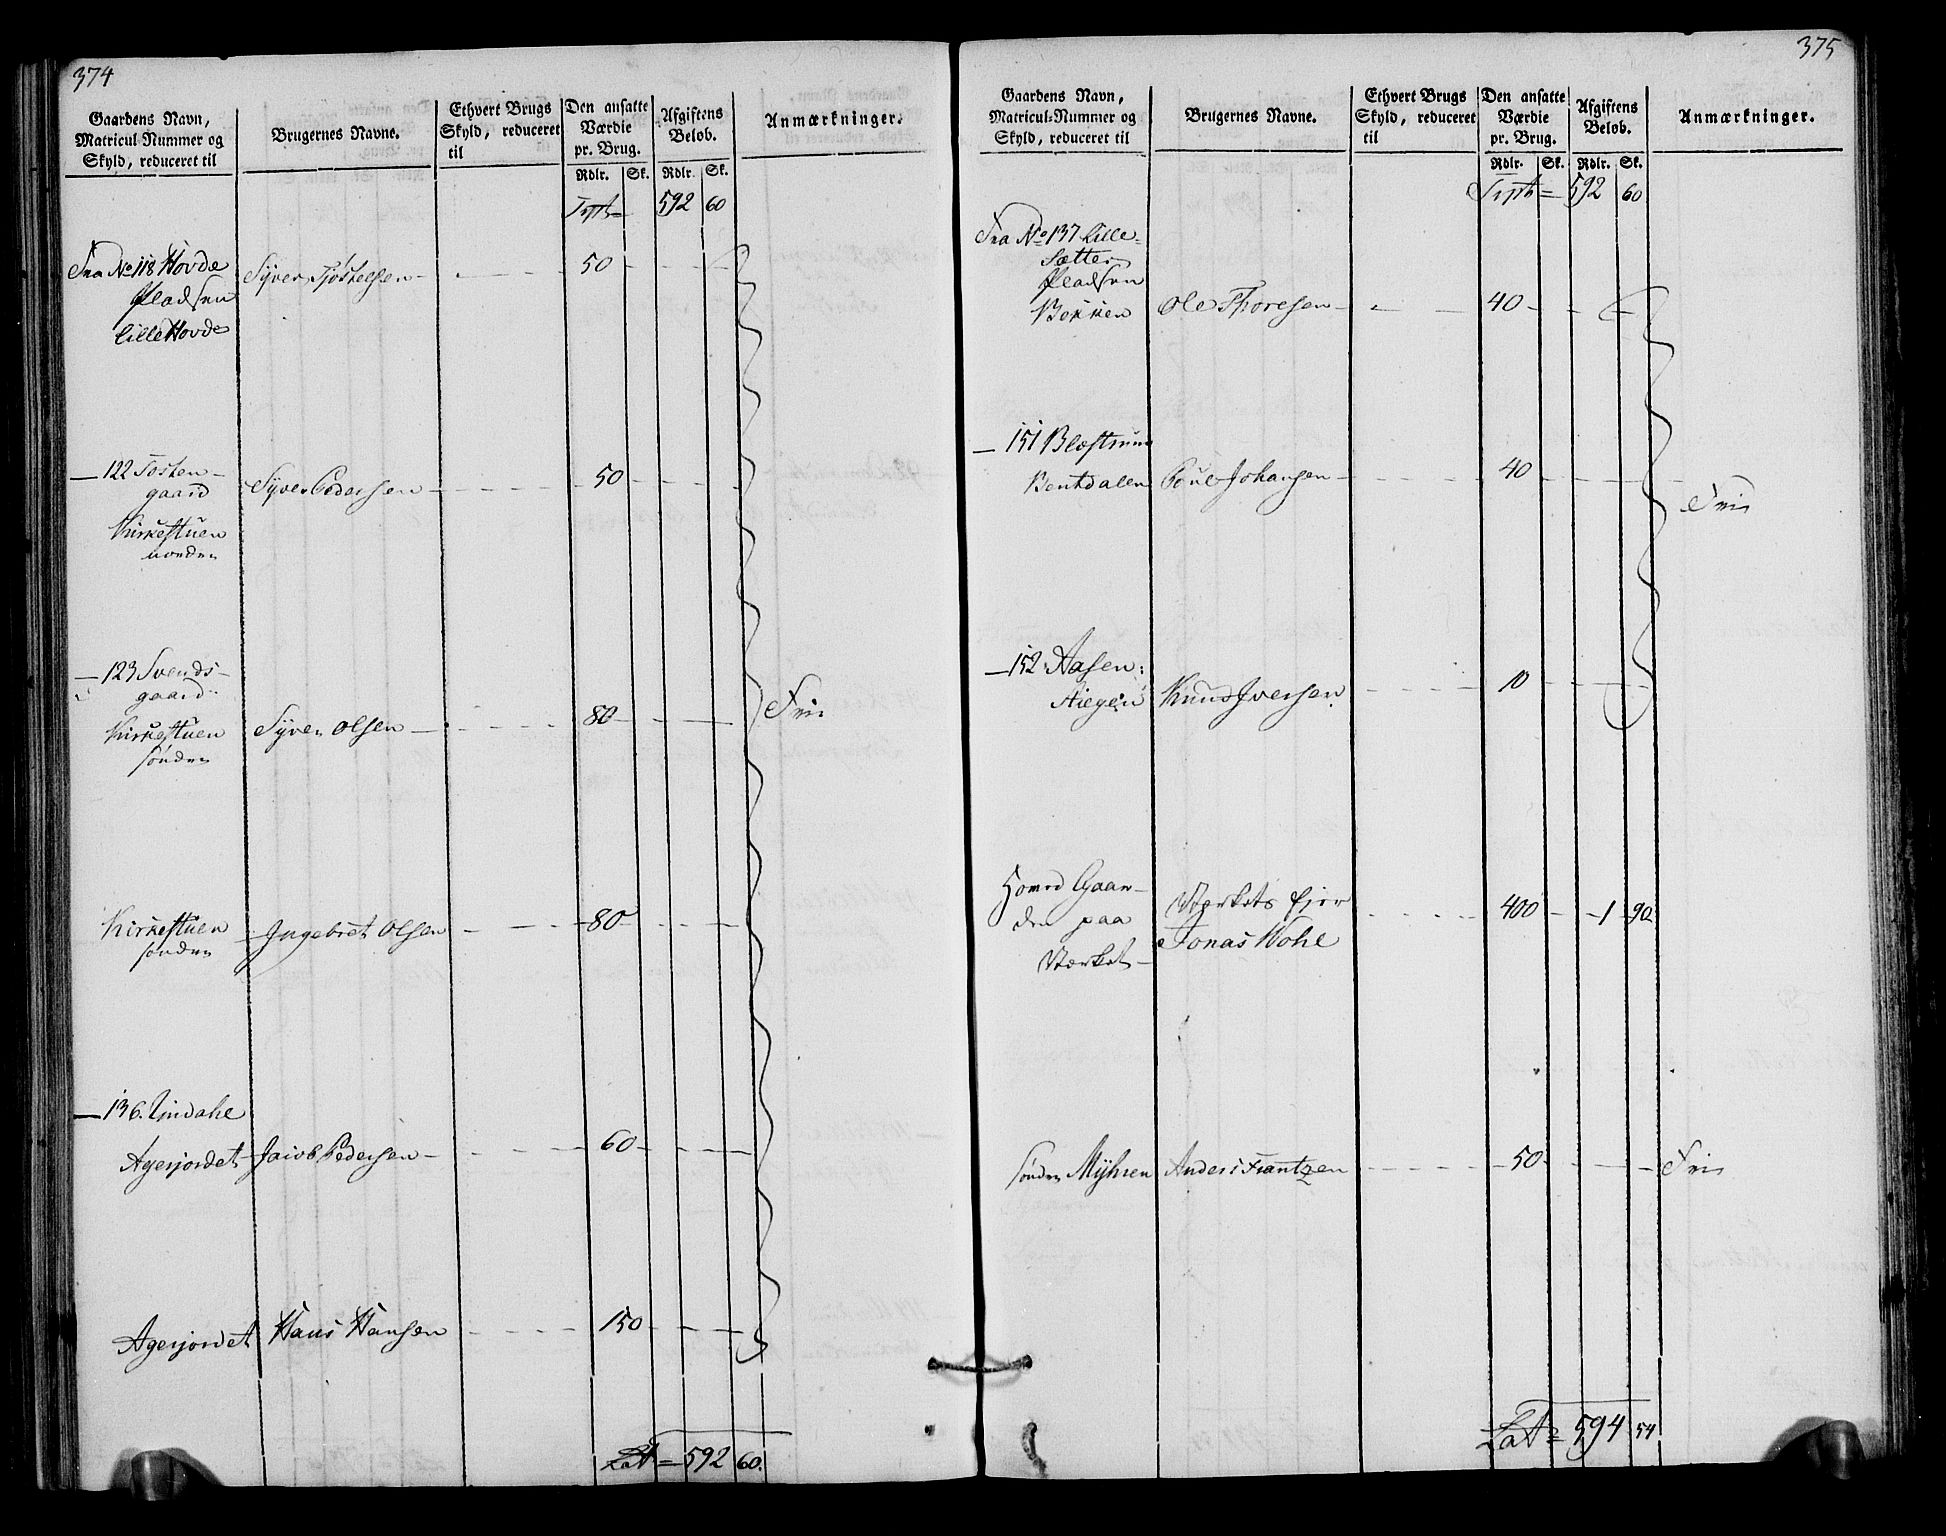 374
Gaardens Navn, Matricul-Nummer og Skyld, reduceret til
Brugernes Navne.
Ethvert Brugs Skyld, reduceret til
Den ansatte Værdie pr. Brug.
Afgiftens Beløb.
Anmærkninger.
Rdlr. Sk. Rdlr. Sk.
Trpt= 592 60
Fra No 118 Hovde Syver Tjøstelsen 50
Pladsen
Lille Hovde
122 Tosten-
gaard Syver Pedersen 50
Kirkestuen
nordre
123 Svends-
gaard
Kirkestuen Syver Olsen 80 Frie
søndre
Kirkestuen Ingebret Olsen 80
søndre
136. Lindahl
Agerjordet Jacob Pedersen 60
Agerjordet Hans Hansen 150
Lat = 592 60.
375
Gaardens Navn, Matricul-Nummer og Skyld, reduceret til
Brugernes Navne.
Ethvert Brugs Skyld, reduceret til
Den ansatte Værdie pr. Brug.
Afgiftens Beløb.
Anmærkninger.
Rdlr. Sk. Rdlr. Sk.
Trpt = 592 60
Fra No 137 Lille-
Sætter
Pladsen
Bekken Ole Thoresen 40
151 Blæstrud
Bentdalen Poul Johansen 40 Frie
152 Aasen:
Stiegen Knud Iversen 10
Hoved Gaar-
den paa Værkets Ejer 400 1 90
Værket Jonas
søndre Myhren Anders Frantzen 50 Frie
Lat = 594 54